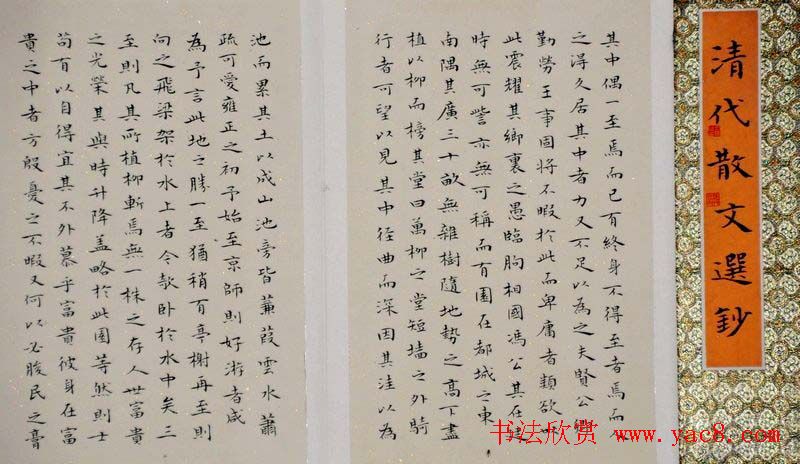 清代散文選鈔
其中偶一至焉而已有終身不得至者焉而人
之得久居其中者力又不足以為之夫賢公卿
勤勞王事固將不暇於此而卑庸者類欲以
此震耀其鄉裏之愚臨朐相國馮公其在廷
時無可訾亦無可稱而有園在都城之東
南隅其廣三十畝無雜樹隨地勢之高下盡
植以柳而榜其堂曰萬柳之堂短墻之外騎
行者可望以見其中徑曲而深因其洼以為
池而累其土以成山池旁皆蒹葭雲水蕭
疏可愛雍正之初予始至京師則好游者咸
為予言此地之勝一至猶稍有亭榭再至則
向之飛梁架於水上者今欹臥於水中矣三
至則凡其所植柳斬焉無一株之存人世富貴
之光榮其與時升降蓋略於此園等然則士
苟有以自得宜其不外慕乎富貴彼身在富
貴之中者方殷憂之不暇又何以必朘民之膏
书法欣赏 www.yac8.com